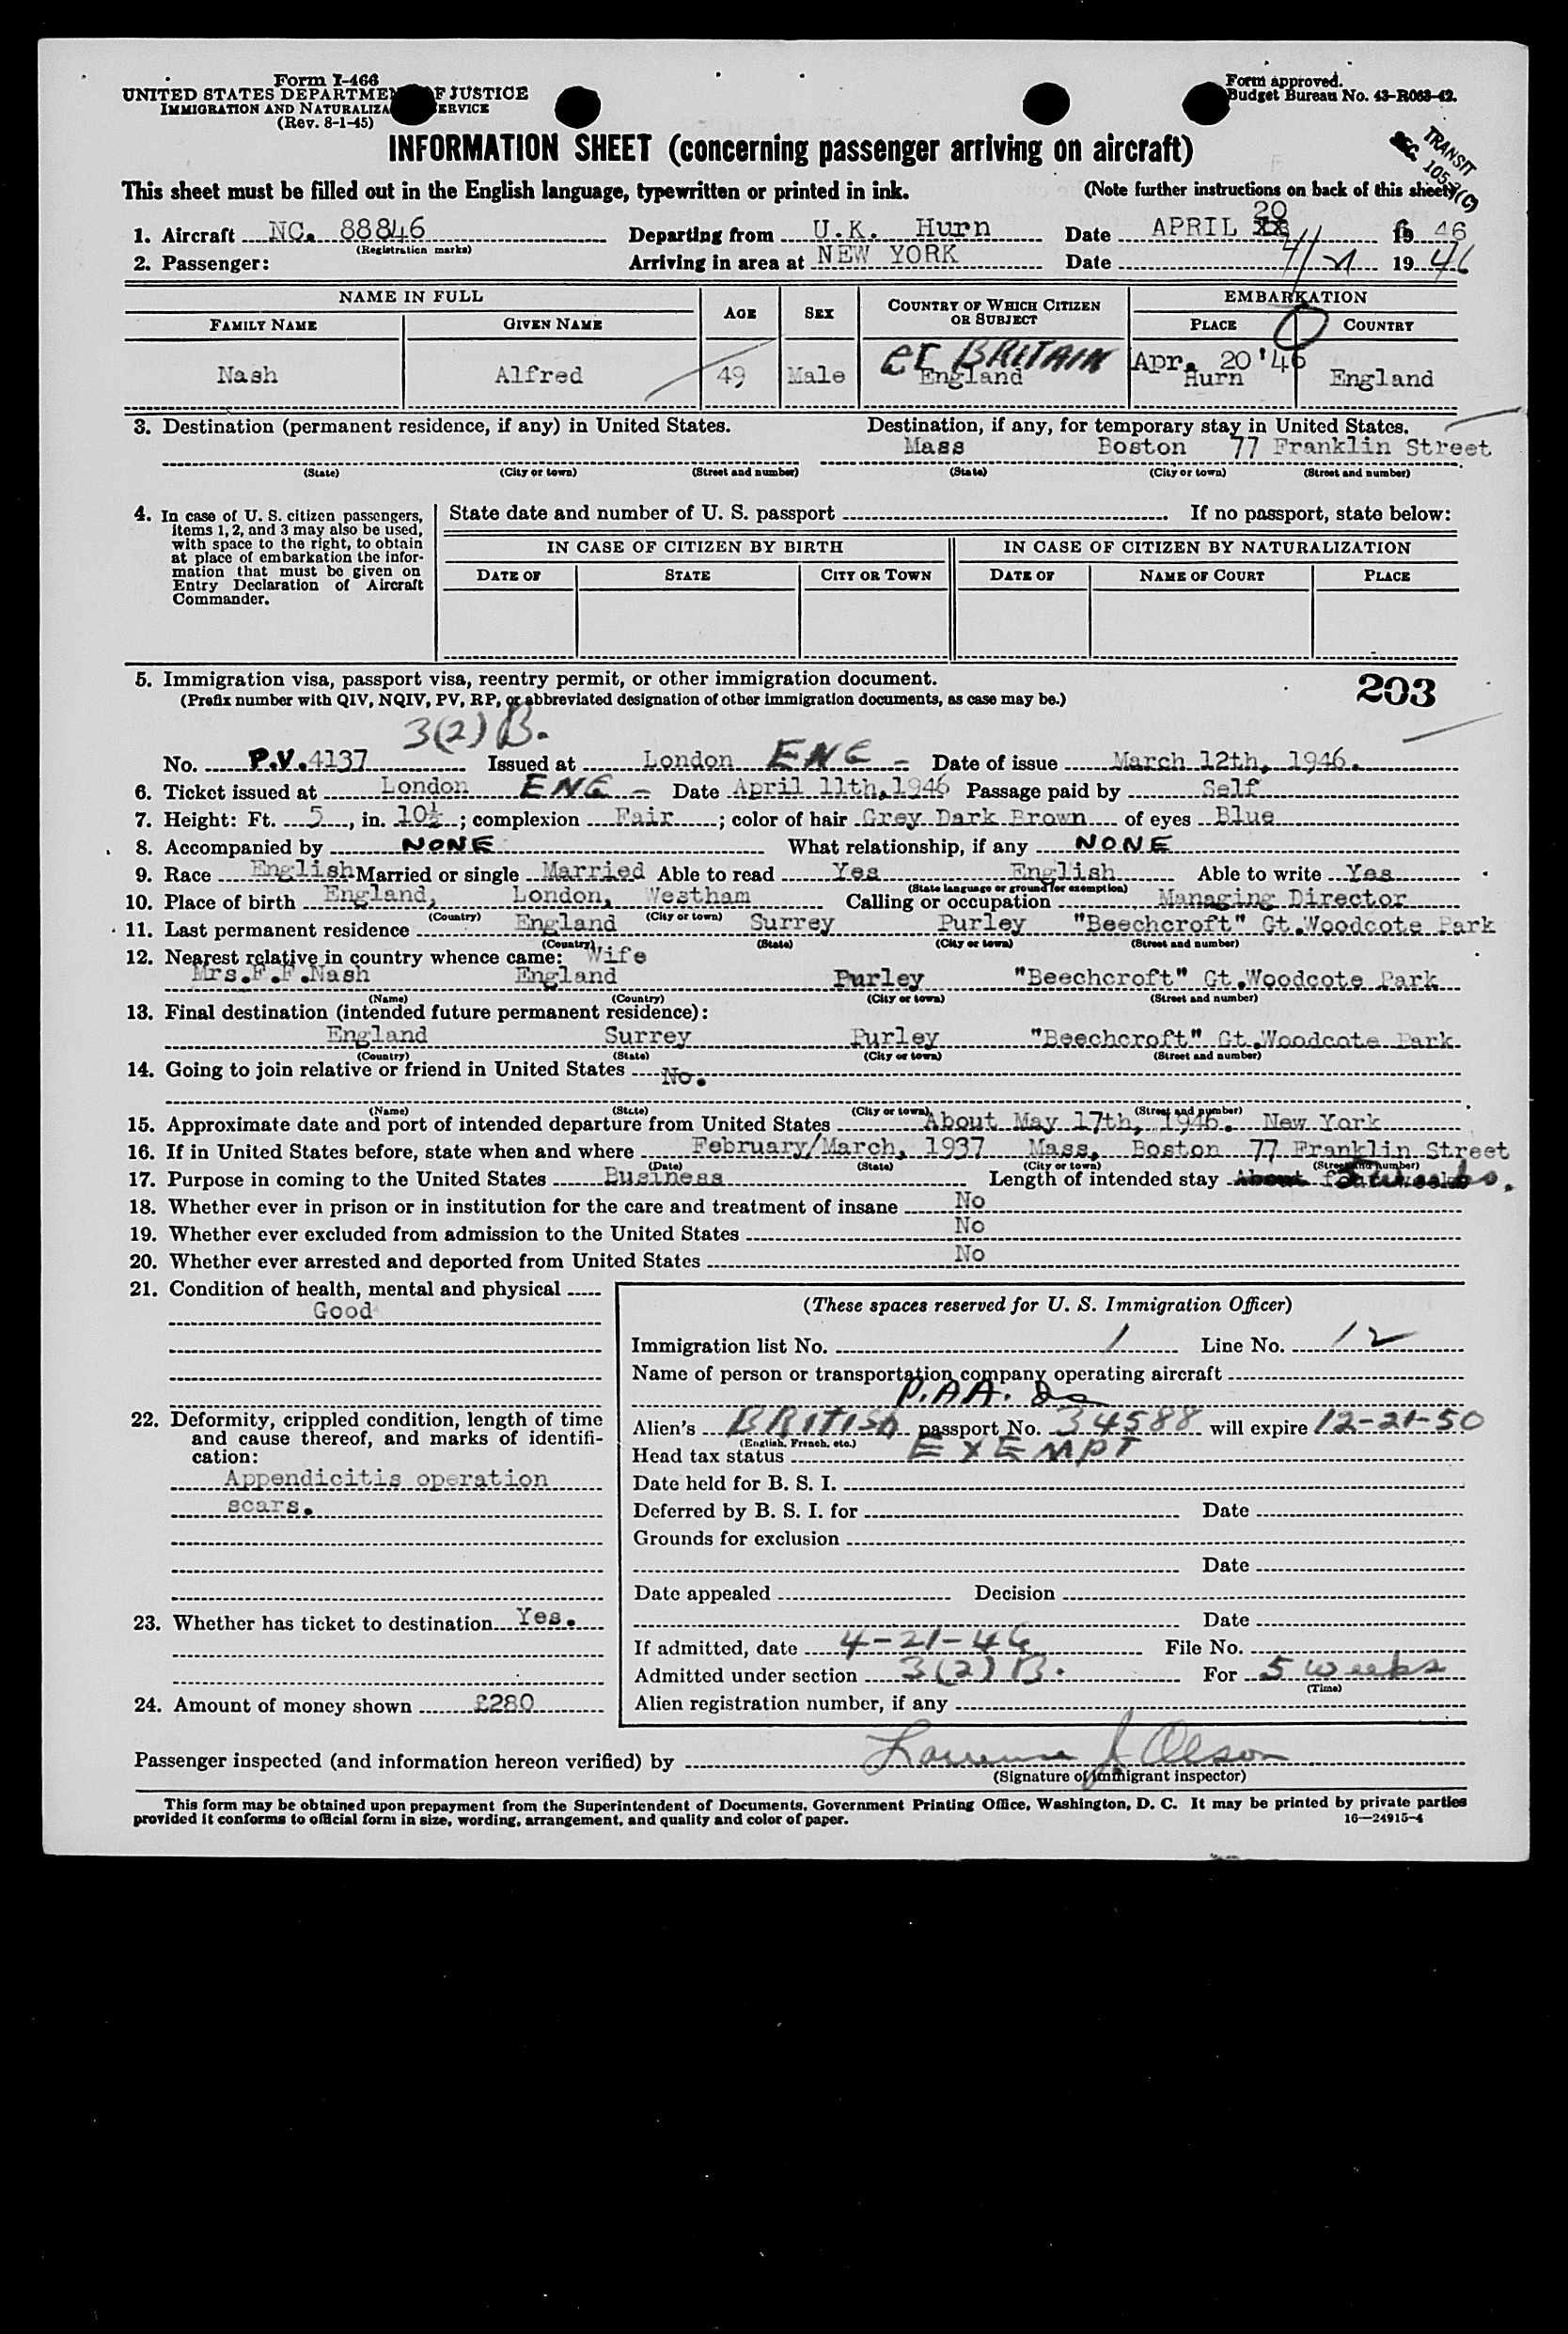 Form I-466
UNITED STATES DEPARTMENT OF JUSTICE
IMMIGRATION AND NATURALIZATION SERVICE
(Rev. 8-1-45)
Form approved.
Budget Bureau No. 43-R063-42.
INFORMATION SHEET (concerning passenger arriving on aircraft)
TRANSIT
SEC. 105.3(C)
This sheet must be filled out in the English language, typewritten or printed in ink. (Note further instructions on back of this sheet)
1. Aircraft NC. 88846 Departing from U.K. Hurn Date APRIL 20 19 46
(Registration marks)
2. Passenger: Arriving in area at NEW YORK Date 4/21 19 46
NAME IN FULL AGE SEX COUNTRY OF WHICH CITIZEN OR SUBJECT EMBARKATION
FAMILY NAME GIVEN NAME PLACE COUNTRY
GT BRITAIN Apr. 20 '46
Nash Alfred 49 Male England Hurn England
3. Destination (permanent residence, if any) in United States. Destination, if any, for temporary stay in United States.
Mass Boston 77 Franklin Street
(State) (City or town) (Street and number) (State) (City or town) (Street and number)
4. In case of U. S. citizen passengers, items 1, 2, and 3 may also be used, with space to the right, to obtain at place of embarkation the information that must be given on Entry Declaration of Aircraft Commander.
State date and number of U. S. passport If no passport, state below:
IN CASE OF CITIZEN BY BIRTH IN CASE OF CITIZEN BY NATURALIZATION
DATE OF STATE CITY OR TOWN DATE OF NAME OF COURT PLACE
5. Immigration visa, passport visa, reentry permit, or other immigration document.
(Prefix number with QIV, NQIV, PV, RP, or abbreviated designation of other immigration documents, as case may be.)
203
3(2) B.
No. P.V. 4137 Issued at London ENG - Date of issue March 12th, 1946.
6. Ticket issued at London ENG - Date April 11th, 1946 Passage paid by Self
7. Height: Ft. 5, in. 10½; complexion Fair; color of hair Grey Dark Brown of eyes Blue
8. Accompanied by NONE What relationship, if any NONE
9. Race English Married or single Married Able to read Yes English Able to write Yes
(State language or ground for exemption)
10. Place of birth England, London, Westham Calling or occupation Managing Director
(Country) (City or town)
11. Last permanent residence England Surrey Purley "Beechcroft" Gt.Woodcote Park
(Country) (State) (City or town) (Street and number)
12. Nearest relative in country whence came: Wife
Mrs.F.F.Nash England Purley "Beechcroft" Gt.Woodcote Park
(Name) (Country) (City or town) (Street and number)
13. Final destination (intended future permanent residence):
England Surrey Purley "Beechcroft" Gt.Woodcote Park
(Country) (State) (City or town) (Street and number)
14. Going to join relative or friend in United States No.
(Name) (State) (City or town) (Street and number)
15. Approximate date and port of intended departure from United States About May 17th, 1946. New York
16. If in United States before, state when and where February/March, 1937 Mass, Boston 77 Franklin Street
(Date) (State) (City or town) (Street and number)
17. Purpose in coming to the United States Business Length of intended stay About four weeks.
18. Whether ever in prison or in institution for the care and treatment of insane No
19. Whether ever excluded from admission to the United States No
20. Whether ever arrested and deported from United States No
21. Condition of health, mental and physical
Good
22. Deformity, crippled condition, length of time and cause thereof, and marks of identification:
Appendicitis operation
scars.
23. Whether has ticket to destination Yes.
24. Amount of money shown £280
(These spaces reserved for U. S. Immigration Officer)
Immigration list No. 1 Line No. 12
Name of person or transportation company operating aircraft
P.A.A.
Alien's BRITISH passport No. 34588 will expire 12-21-50
(English, French, etc.)
Head tax status EXEMPT
Date held for B. S. I.
Deferred by B. S. I. for Date
Grounds for exclusion
Date
Date appealed Decision
Date
If admitted, date 4-21-46 File No.
Admitted under section 3(2) B. For 5 weeks
(Time)
Alien registration number, if any
Passenger inspected (and information hereon verified) by Lawrence J Olson
(Signature of immigrant inspector)
This form may be obtained upon prepayment from the Superintendent of Documents, Government Printing Office, Washington, D. C. It may be printed by private parties
provided it conforms to official form in size, wording, arrangement, and quality and color of paper. 16—24915-4